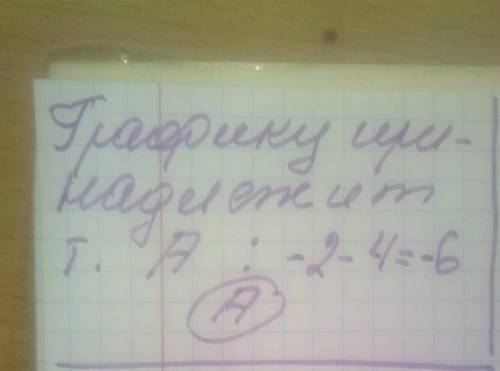 Графику при-
надлежит
т. А : -2-4=-6
А